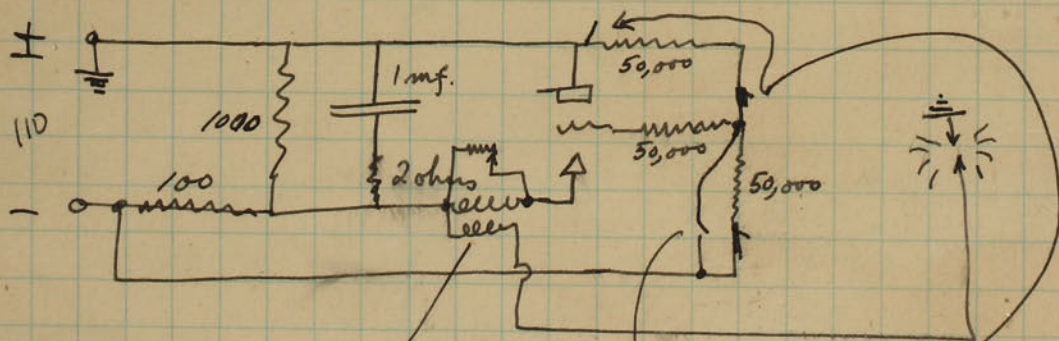 ±
110
−
100
1000
1 mf.
2 ohms
50,000
50,000
50,000